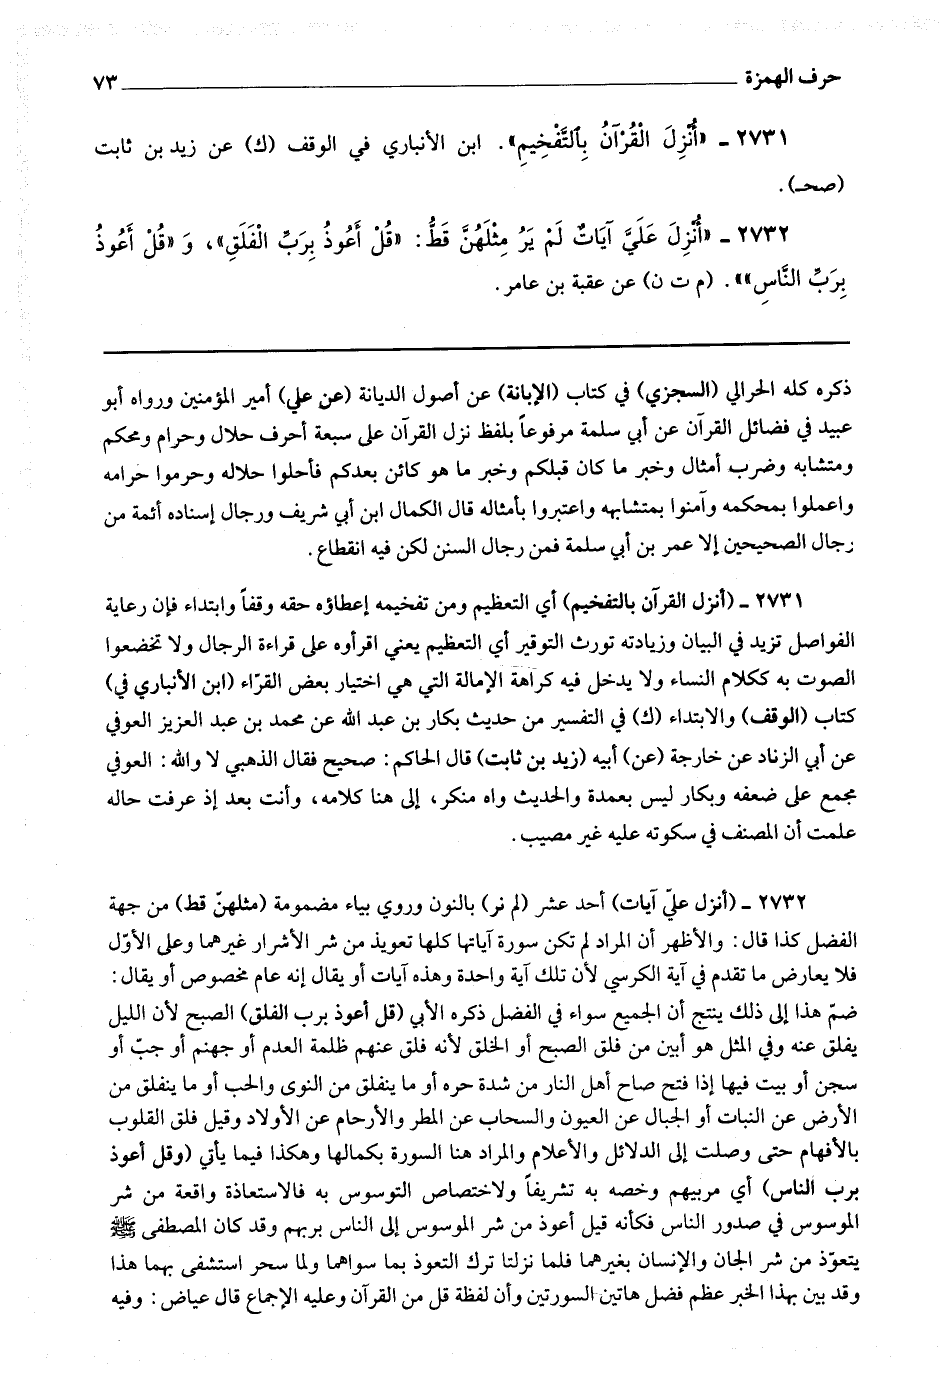 حرف الهمزة ٧٣
٢٧٣١ ـ «أُنْزِلَ الْقُرْآنُ بِالتَّفْخِيمِ». ابن الأنباري في الوقف (ك) عن زيد بن ثابت
(صحـ).
٢٧٣٢ ـ «أُنْزِلَ عَلَيَّ آيَاتٌ لَمْ يَرُ مِثْلَهُنَّ قَطُّ: «قُلْ أَعُوذُ بِرَبِّ الْفَلَقِ»، وَ «قُلْ أَعُوذُ
بِرَبِّ النَّاسِ»». (م ت ن) عن عقبة بن عامر.
ذكره كله الحرالي (السجزي) في كتاب (الإبانة) عن أصول الديانة (عن علي) أمير المؤمنين ورواه أبو
عبيد في فضائل القرآن عن أبي سلمة مرفوعاً بلفظ نزل القرآن على سبعة أحرف حلال وحرام ومحكم
ومتشابه وضرب أمثال وخبر ما كان قبلكم وخبر ما هو كائن بعدكم فأحلوا حلاله وحرموا حرامه
واعملوا بمحكمه وآمنوا بمتشابهه واعتبروا بأمثاله قال الكمال ابن أبي شريف ورجال إسناده أئمة من
رجال الصحيحين إلا عمر بن أبي سلمة فمن رجال السنن لكن فيه انقطاع.
٢٧٣١ ـ (أنزل القرآن بالتفخيم) أي التعظيم ومن تفخيمه إعطاؤه حقه وقفاً وابتداء فإن رعاية
الفواصل تزيد في البيان وزيادته تورث التوقير أي التعظيم يعني اقرأوه على قراءة الرجال ولا تخضعوا
الصوت به ككلام النساء ولا يدخل فيه كراهة الإمالة التي هي اختيار بعض القرّاء (ابن الأنباري في)
كتاب (الوقف) والابتداء (ك) في التفسير من حديث بكار بن عبد الله عن محمد بن عبد العزيز العوفي
عن أبي الزناد عن خارجة (عن) أبيه (زيد بن ثابت) قال الحاكم: صحيح فقال الذهبي لا والله: العوفي
مجمع على ضعفه وبكار ليس بعمدة والحديث واه منكر، إلى هنا كلامه، وأنت بعد إذ عرفت حاله
علمت أن المصنف في سكوته عليه غير مصيب.
٢٧٣٢ ـ (أنزل عليّ آيات) أحد عشر (لم نر) بالنون وروي بياء مضمومة (مثلهنّ قط) من جهة
الفضل كذا قال: والأظهر أن المراد لم تكن سورة آياتها كلها تعويذ من شر الأشرار غيرهما وعلى الأوّل
فلا يعارض ما تقدم في آية الكرسي لأن تلك آية واحدة وهذه آيات أو يقال إنه عام مخصوص أو يقال:
ضمّ هذا إلى ذلك ينتج أن الجميع سواء في الفضل ذكره الأبي (قل أعوذ برب الفلق) الصبح لأن الليل
يفلق عنه وفي المثل هو أبين من فلق الصبح أو الخلق لأنه فلق عنهم ظلمة العدم أو جهنم أو جبّ أو
سجن أو بيت فيها إذا فتح صاح أهل النار من شدة حره أو ما ينفلق من النوى والحب أو ما ينفلق من
الأرض عن النبات أو الجبال عن العيون والسحاب عن المطر والأرحام عن الأولاد وقيل فلق القلوب
بالأفهام حتى وصلت إلى الدلائل والأعلام والمراد هنا السورة بكمالها وهكذا فيما يأتي (وقل أعوذ
برب الناس) أي مربيهم وخصه به تشريفاً ولاختصاص التوسوس به فالاستعاذة واقعة من شر
الموسوس في صدور الناس فكأنه قيل أعوذ من شر الموسوس إلى الناس بربهم وقد كان المصطفى ﷺ
يتعوّذ من شر الجان والإنسان بغيرهما فلما نزلتا ترك التعوذ بما سواهما ولما سحر استشفى بهما هذا
وقد بين بهذا الخبر عظم فضل هاتين السورتين وأن لفظة قل من القرآن وعليه الإجماع قال عياض: وفيه